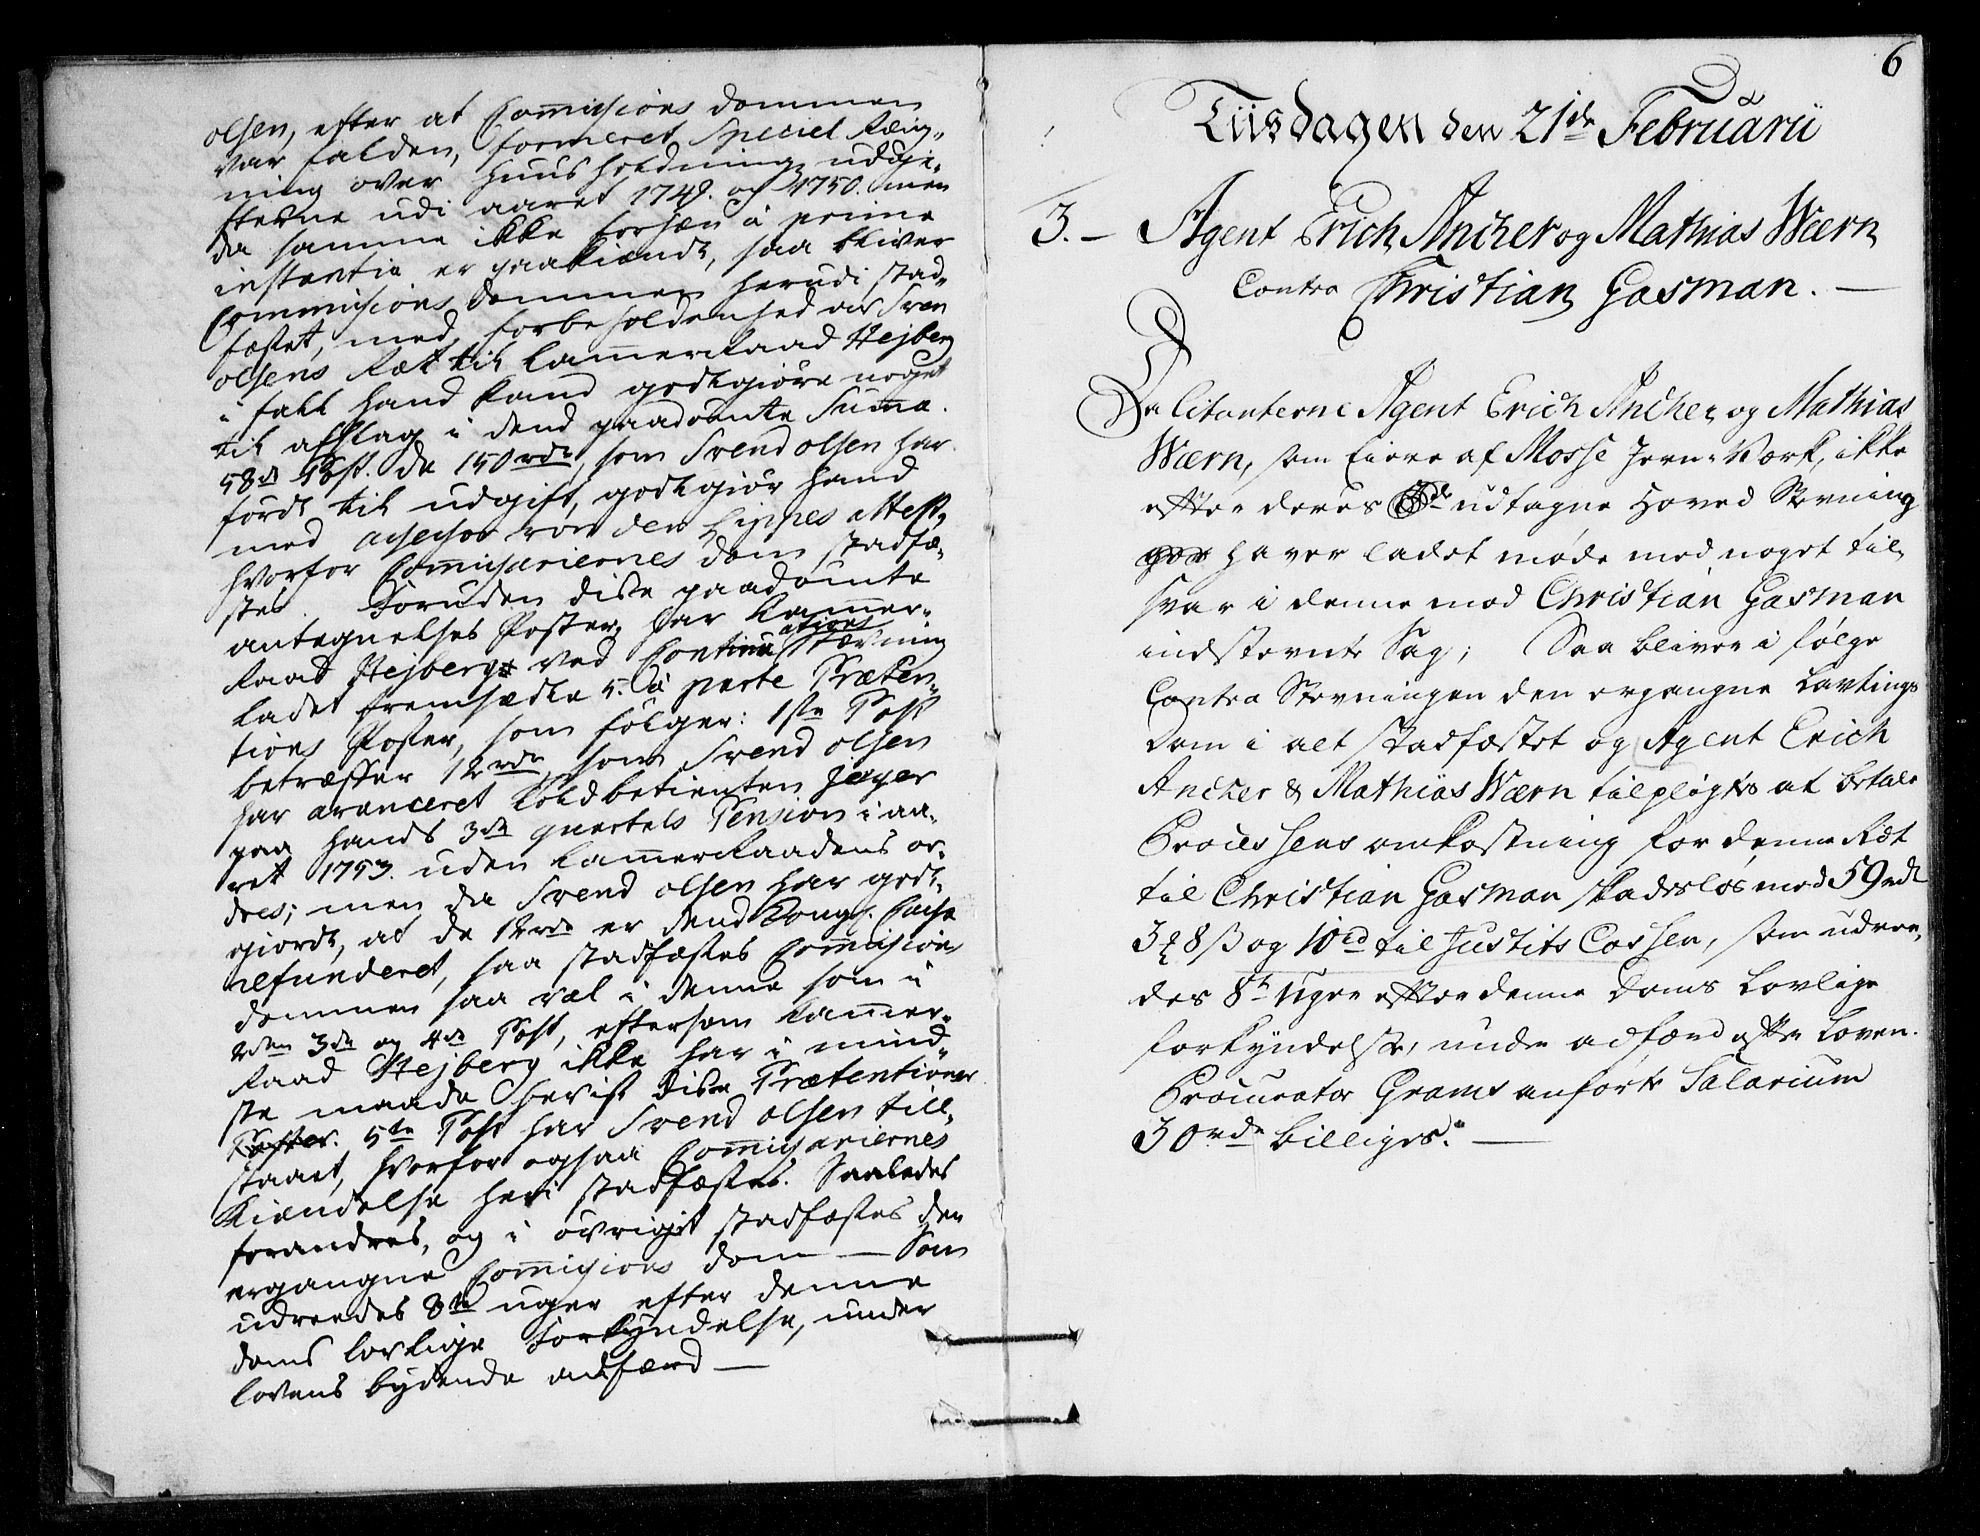 olsen, efter at Com̅isions dommen
var falden, formeret Speciel Reig„
ning over Huusholdning udgif„
fterne udi aaret 1749. og 1750. men
da samme ikke forhen a prima
instantia er paakiendt, saa bliver
Commisions dommen herudi stad„
fæstet, med forbeholdenhed av Sven
olsens Ræt til Cam̅erRaad Hejberg
i fald hand kand godtgiøre noget
til afslag i dend paadømte Summa.
58de Post. de 150 rdr, som Svend olsen har
ført til udgift, godtgiør hand
med Assessor von der Lippes attest,
hvorfor Com̅isariernes dom stadfæ„
stes. Foruden disse paadømte
antegnelses Poster, har Cam̅er„
Raad Hejberg ved Continuations Stævning
ladet fremsætte 5. a parte Præten„
tions Poster, som følger: 1ste Post
betræffer 12 rdr som Svend olsen
har avanceret Toldbetienten Jæger
paa hands 3de quartals Pension i aa„
ret 1753. uden Cam̅erRaadens or„
dres; men da Svend olsen har godt„
giordt, at de 12 rdr er dend Kongl. Cassa
refunderet, saa stadfæstes Com̅isions
dommen saa vel i denne som i
2den 3de og 4de Post, eftersom Cam̅er„
Raad Hejberg ikke har i mind„
ste maade bevist disse Prætentioner
Poster. 5te Post har Svend olsen till„
staaet, hvorfor ogsaa Com̅isariernes
Kiendelse heri stadfæstes. Saaledes
forandres, og i øvrigt stadfæstes den
ergangne Com̅isions dom — Som
udreedes 8te uger efter denne
doms lovlige Forkyndelse, under
lovens bydende adfærd —
6
Tiisdagen den 21de Februarii
3. — Agent Erich Ancher og Mathias Wærn
Contra Christian Gasman. —
Da Citanterne Agent Erich Ancher og Mathias
Wærn, som Eiere af Mosse Jern-Værk, ikke
efter deres udtagne Hoved Stevning
haver ladet møde med noget til„
svar i denne mod Christian Gasman
indstevnte Sag; Saa bliver i følge
Contra Stevningen den ergangne Lavtings
Dom i alt stadfæstet og Agent Erich
Ancher & Mathias Wærn tilpligtes at betale
Processens omkostning for denne Ræt
til Christian Gasman skadesløs med 59 rdr
3 ꝣ 8 β og 10 rd til Justits Cassen, som udree„
des 8te Uger efter denne Doms Lovlige
forkyndelse, under adfærd efter Loven.
Procurator Grams anførte Salarium
30 rdr billiges. —